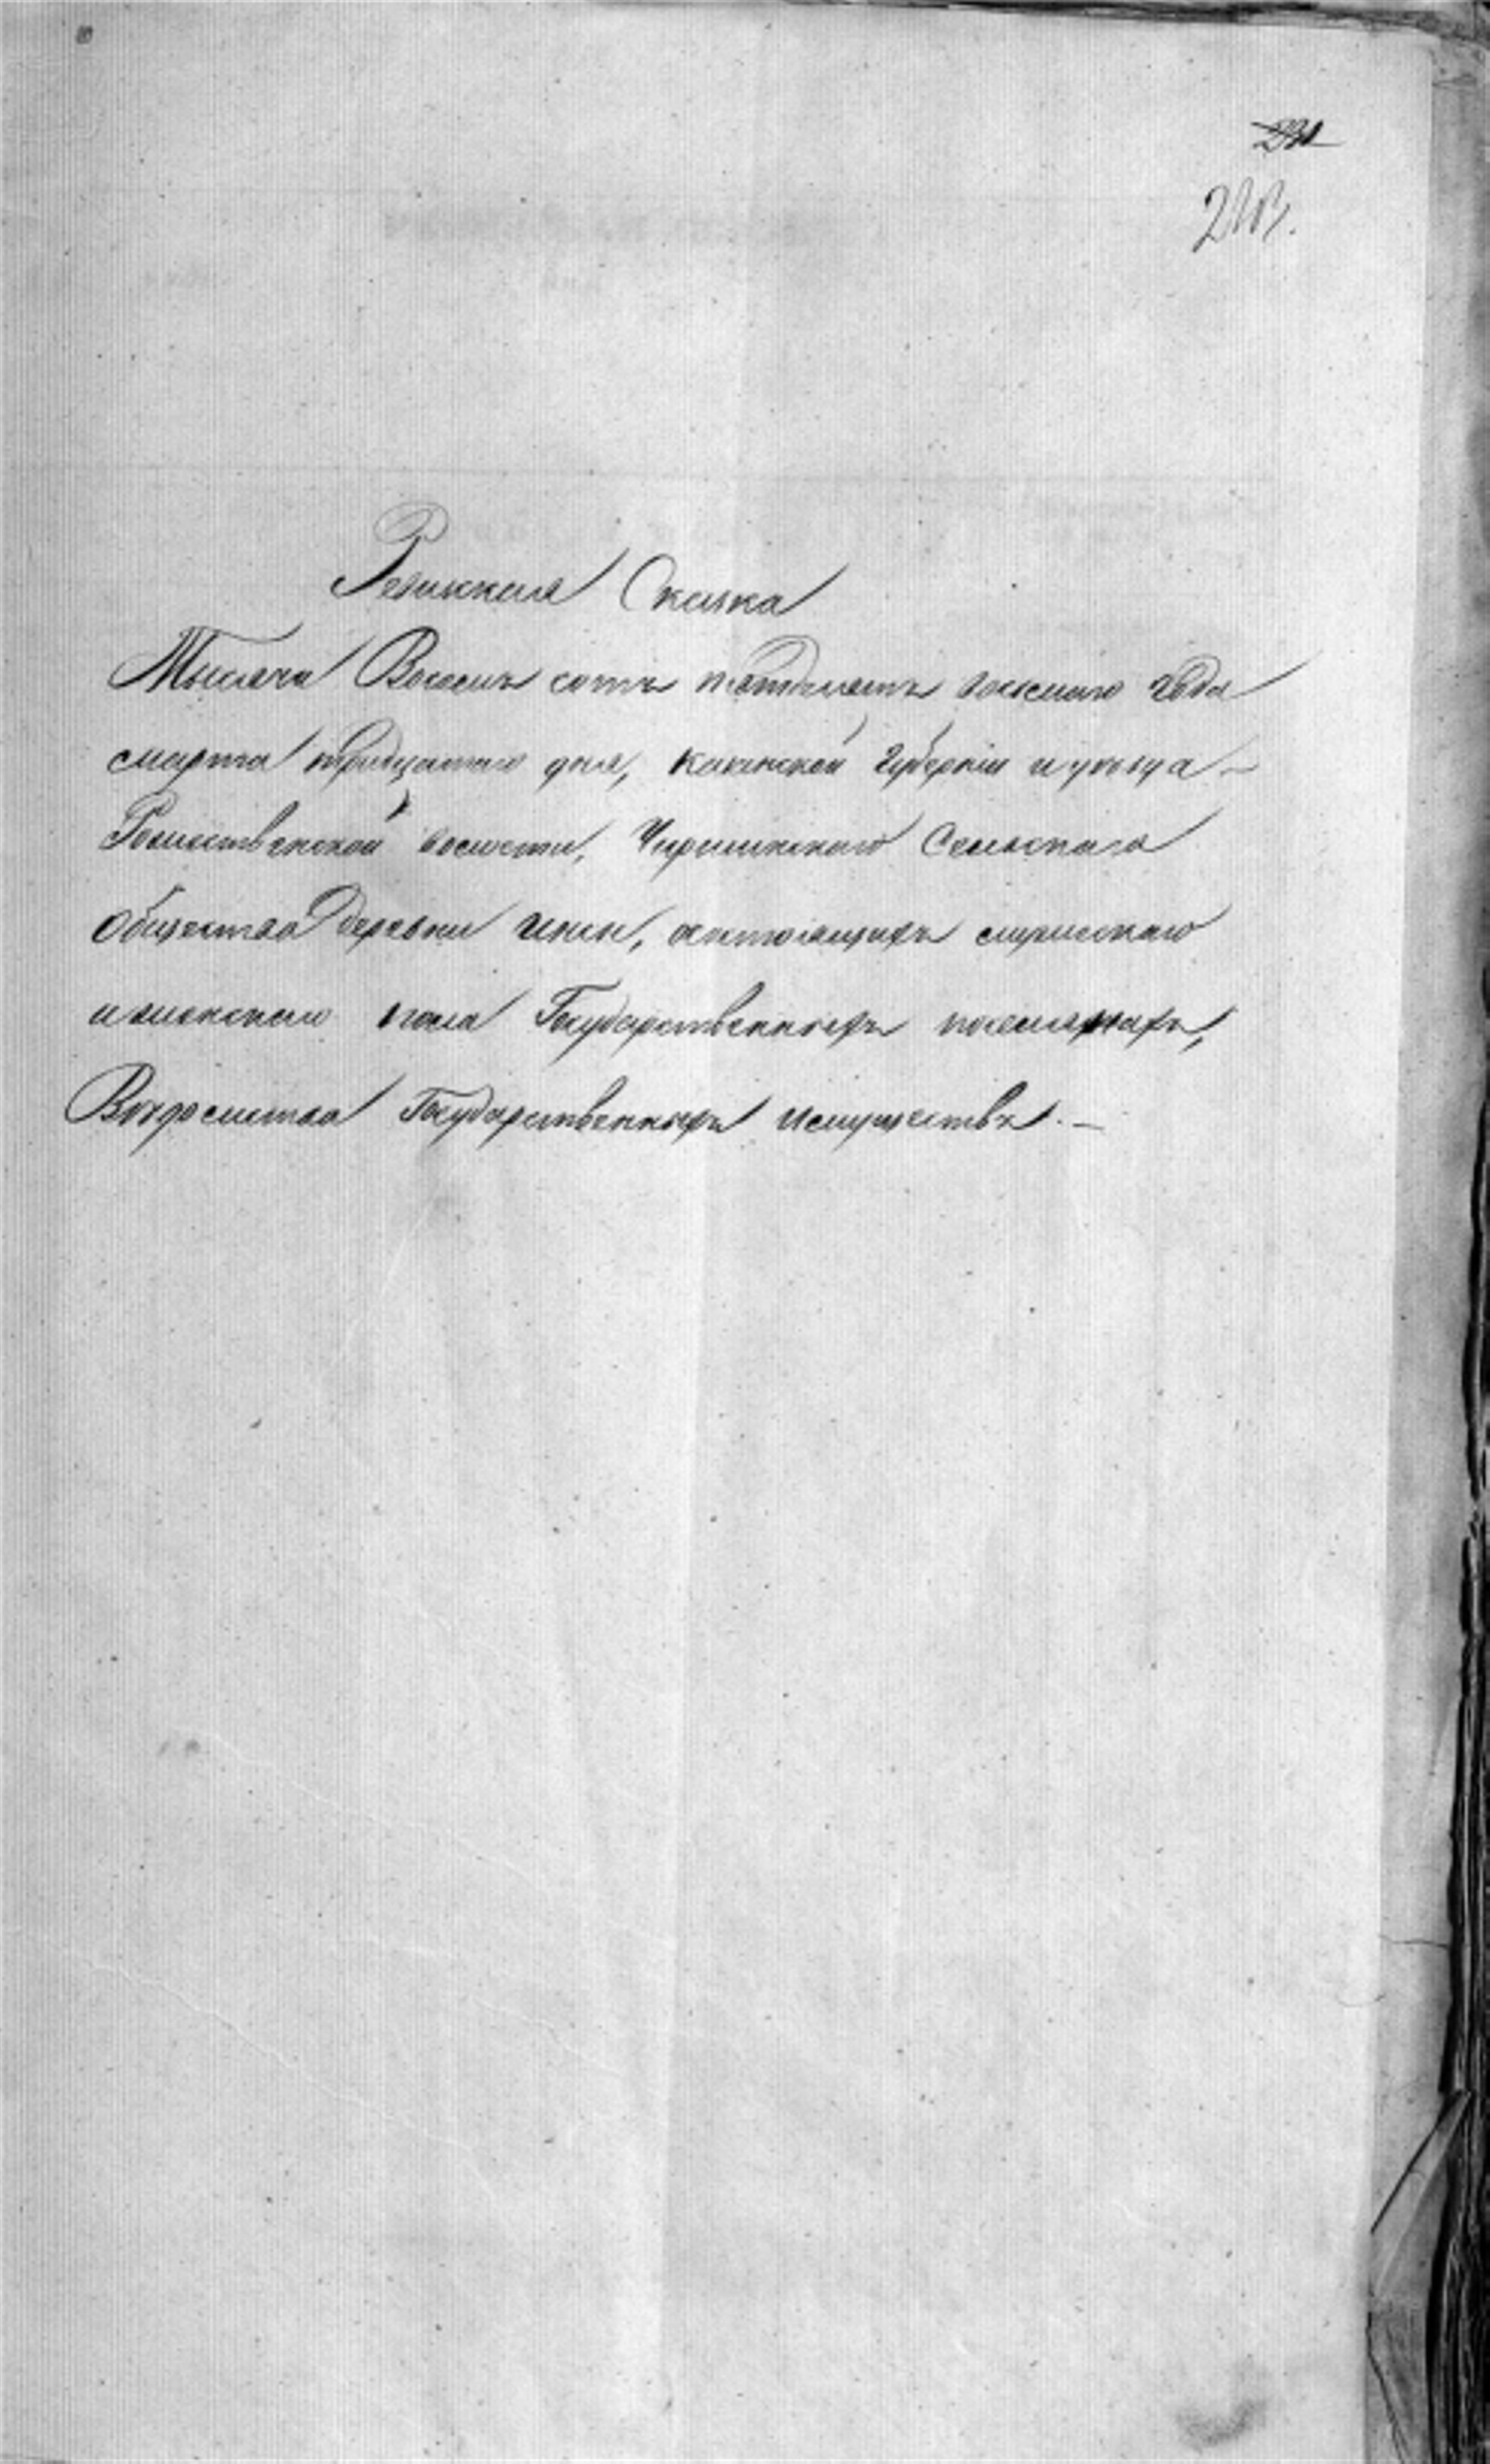 Ревизская Сказка
Тысяча Восемь сотъ пятдесятъ восьмаго года
марта тридцатаго дня, Казанской Губерніи и уезда
Рожественской волости, Чиршинскаго Сельскаго
Общества деревни состоящихъ мужескаго
и женскаго пола Государственныхъ поселянахъ,
Ведомства Государственныхъ Имуществъ. —